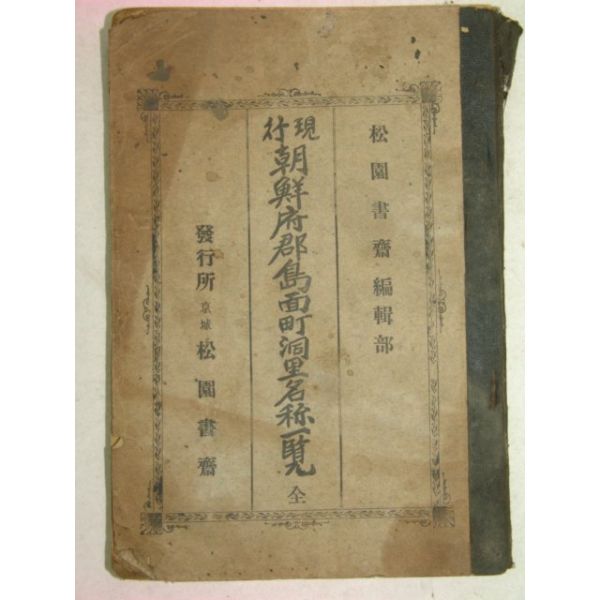 松園書齋編輯部
現行朝鮮府郡島面町洞里名称一覧 全
發行所 京城 松園書齋